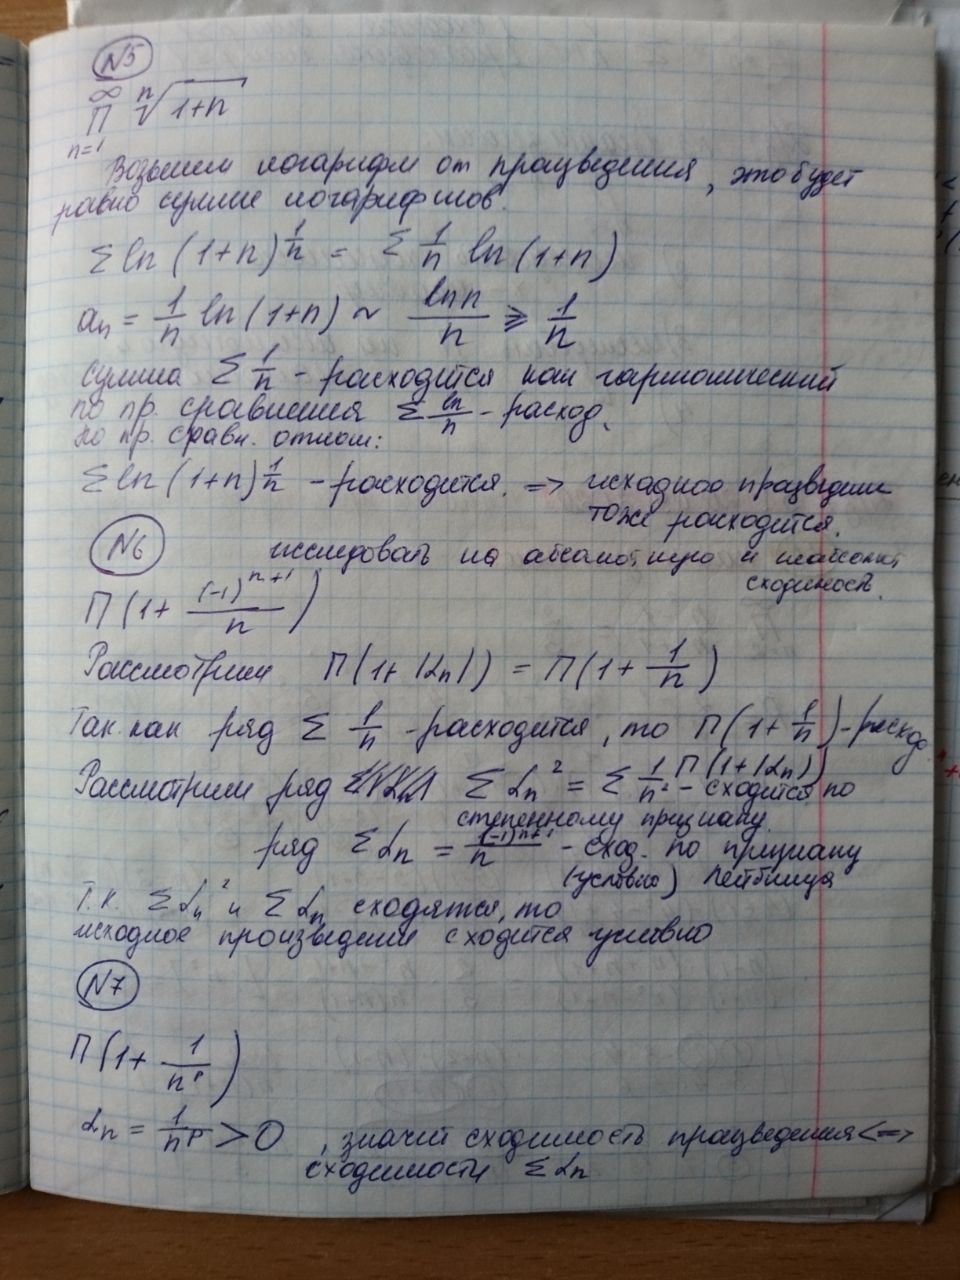 N5
∞
∏ ⁿ√1+n
n=1
Возьмем логарифм от працведения, это будет
равно сумме логарифмов.
Σ ln (1+n)^{1/n} = Σ 1/n ln (1+n)
aₙ = 1/n ln (1+n) ~ ln n / n ⩾ 1/n
Сумма Σ 1/n - расходится как гармонический
по пр. сравнения Σ ln/n - расход.
по пр. сравн. отнош:
Σ ln (1+n)^{1/n} - расходится. => исходное працведение
тоже расходится.
N6 исследовать на абсолютную и неабсолют.
сходимость.
П (1 + (-1)^{n+1}/n)
Рассмотрим П(1+|αₙ|) = П(1 + 1/n)
Так как ряд Σ 1/n - расходится, то П(1+ 1/n) - расход.
П(1+|αₙ|)
Рассмотрим ряд Σ αₙ² = Σ 1/n² - сходится по
степенному признаку.
ряд Σ αₙ = (-1)^{n+1}/n - сход. по признаку
(условно) Лейбница
Т.к. Σ αₙ² и Σ αₙ сходятся, то
исходное произведение сходится условно
N7
П(1+ 1/n^p)
αₙ = 1/n^p > 0 , значит сходимость працведения <=>
сходимости Σ αₙ